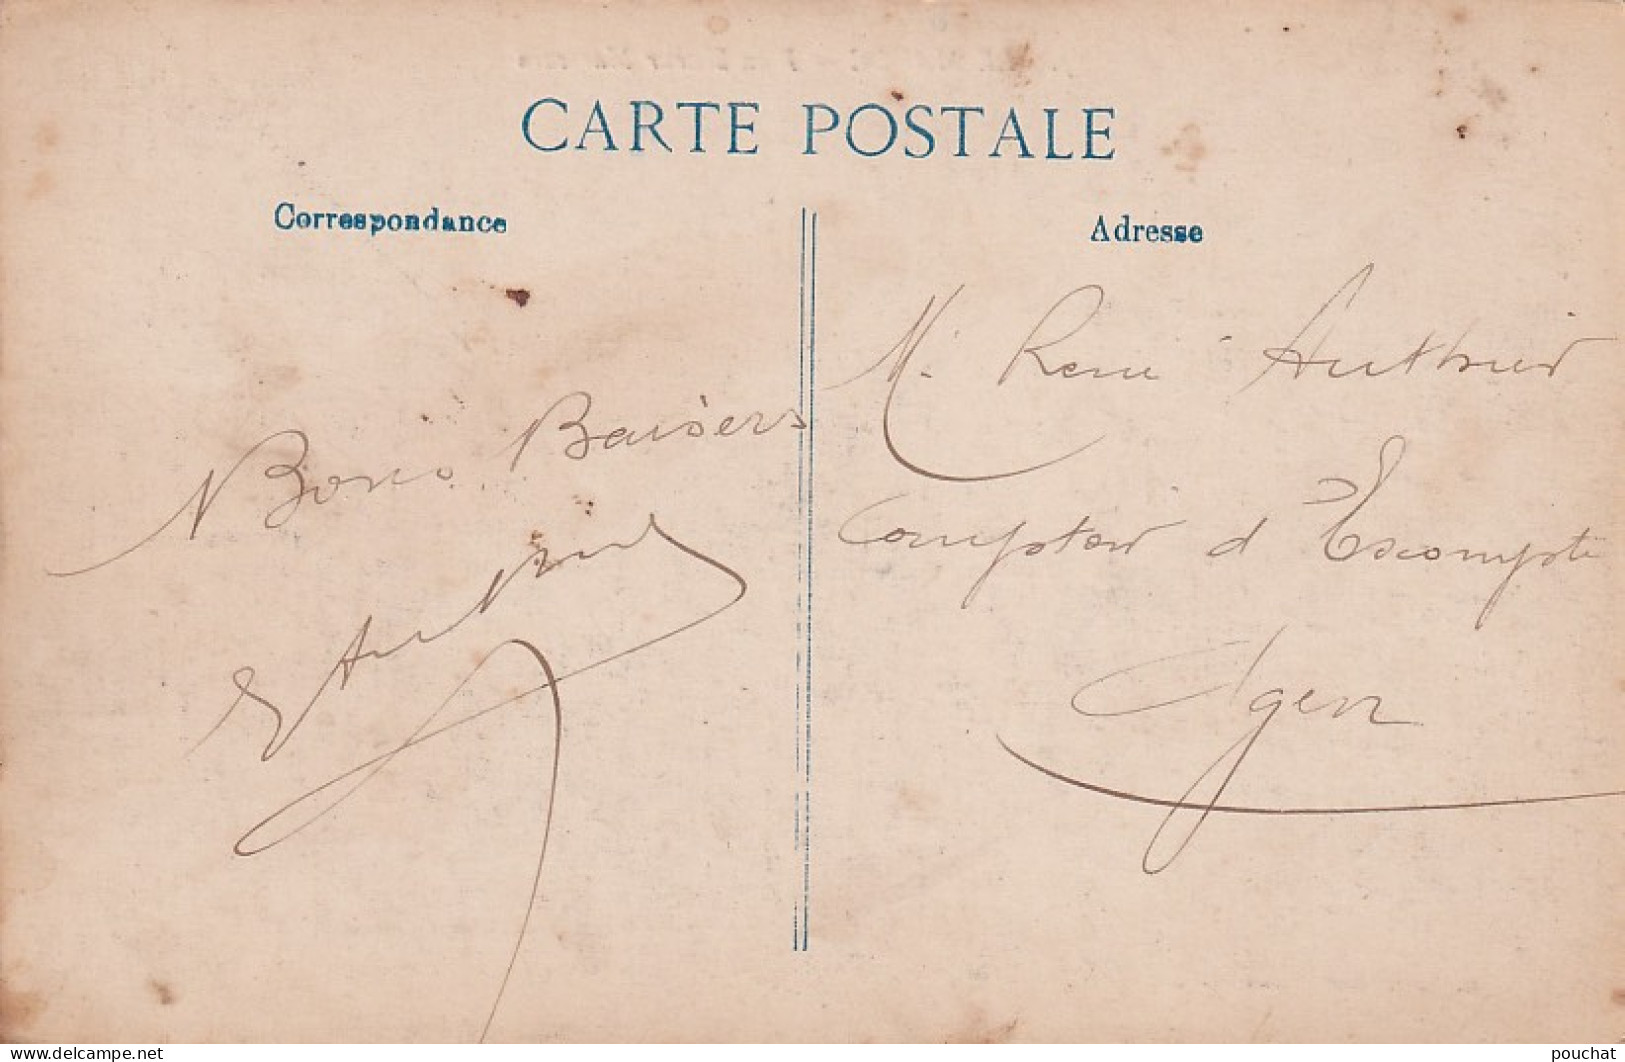 CARTE POSTALE
Correspondance
Bons Baisers
Adresse
M. René Authier
Comptoir d'Escompte
Agen
delcampe.net
pouchat